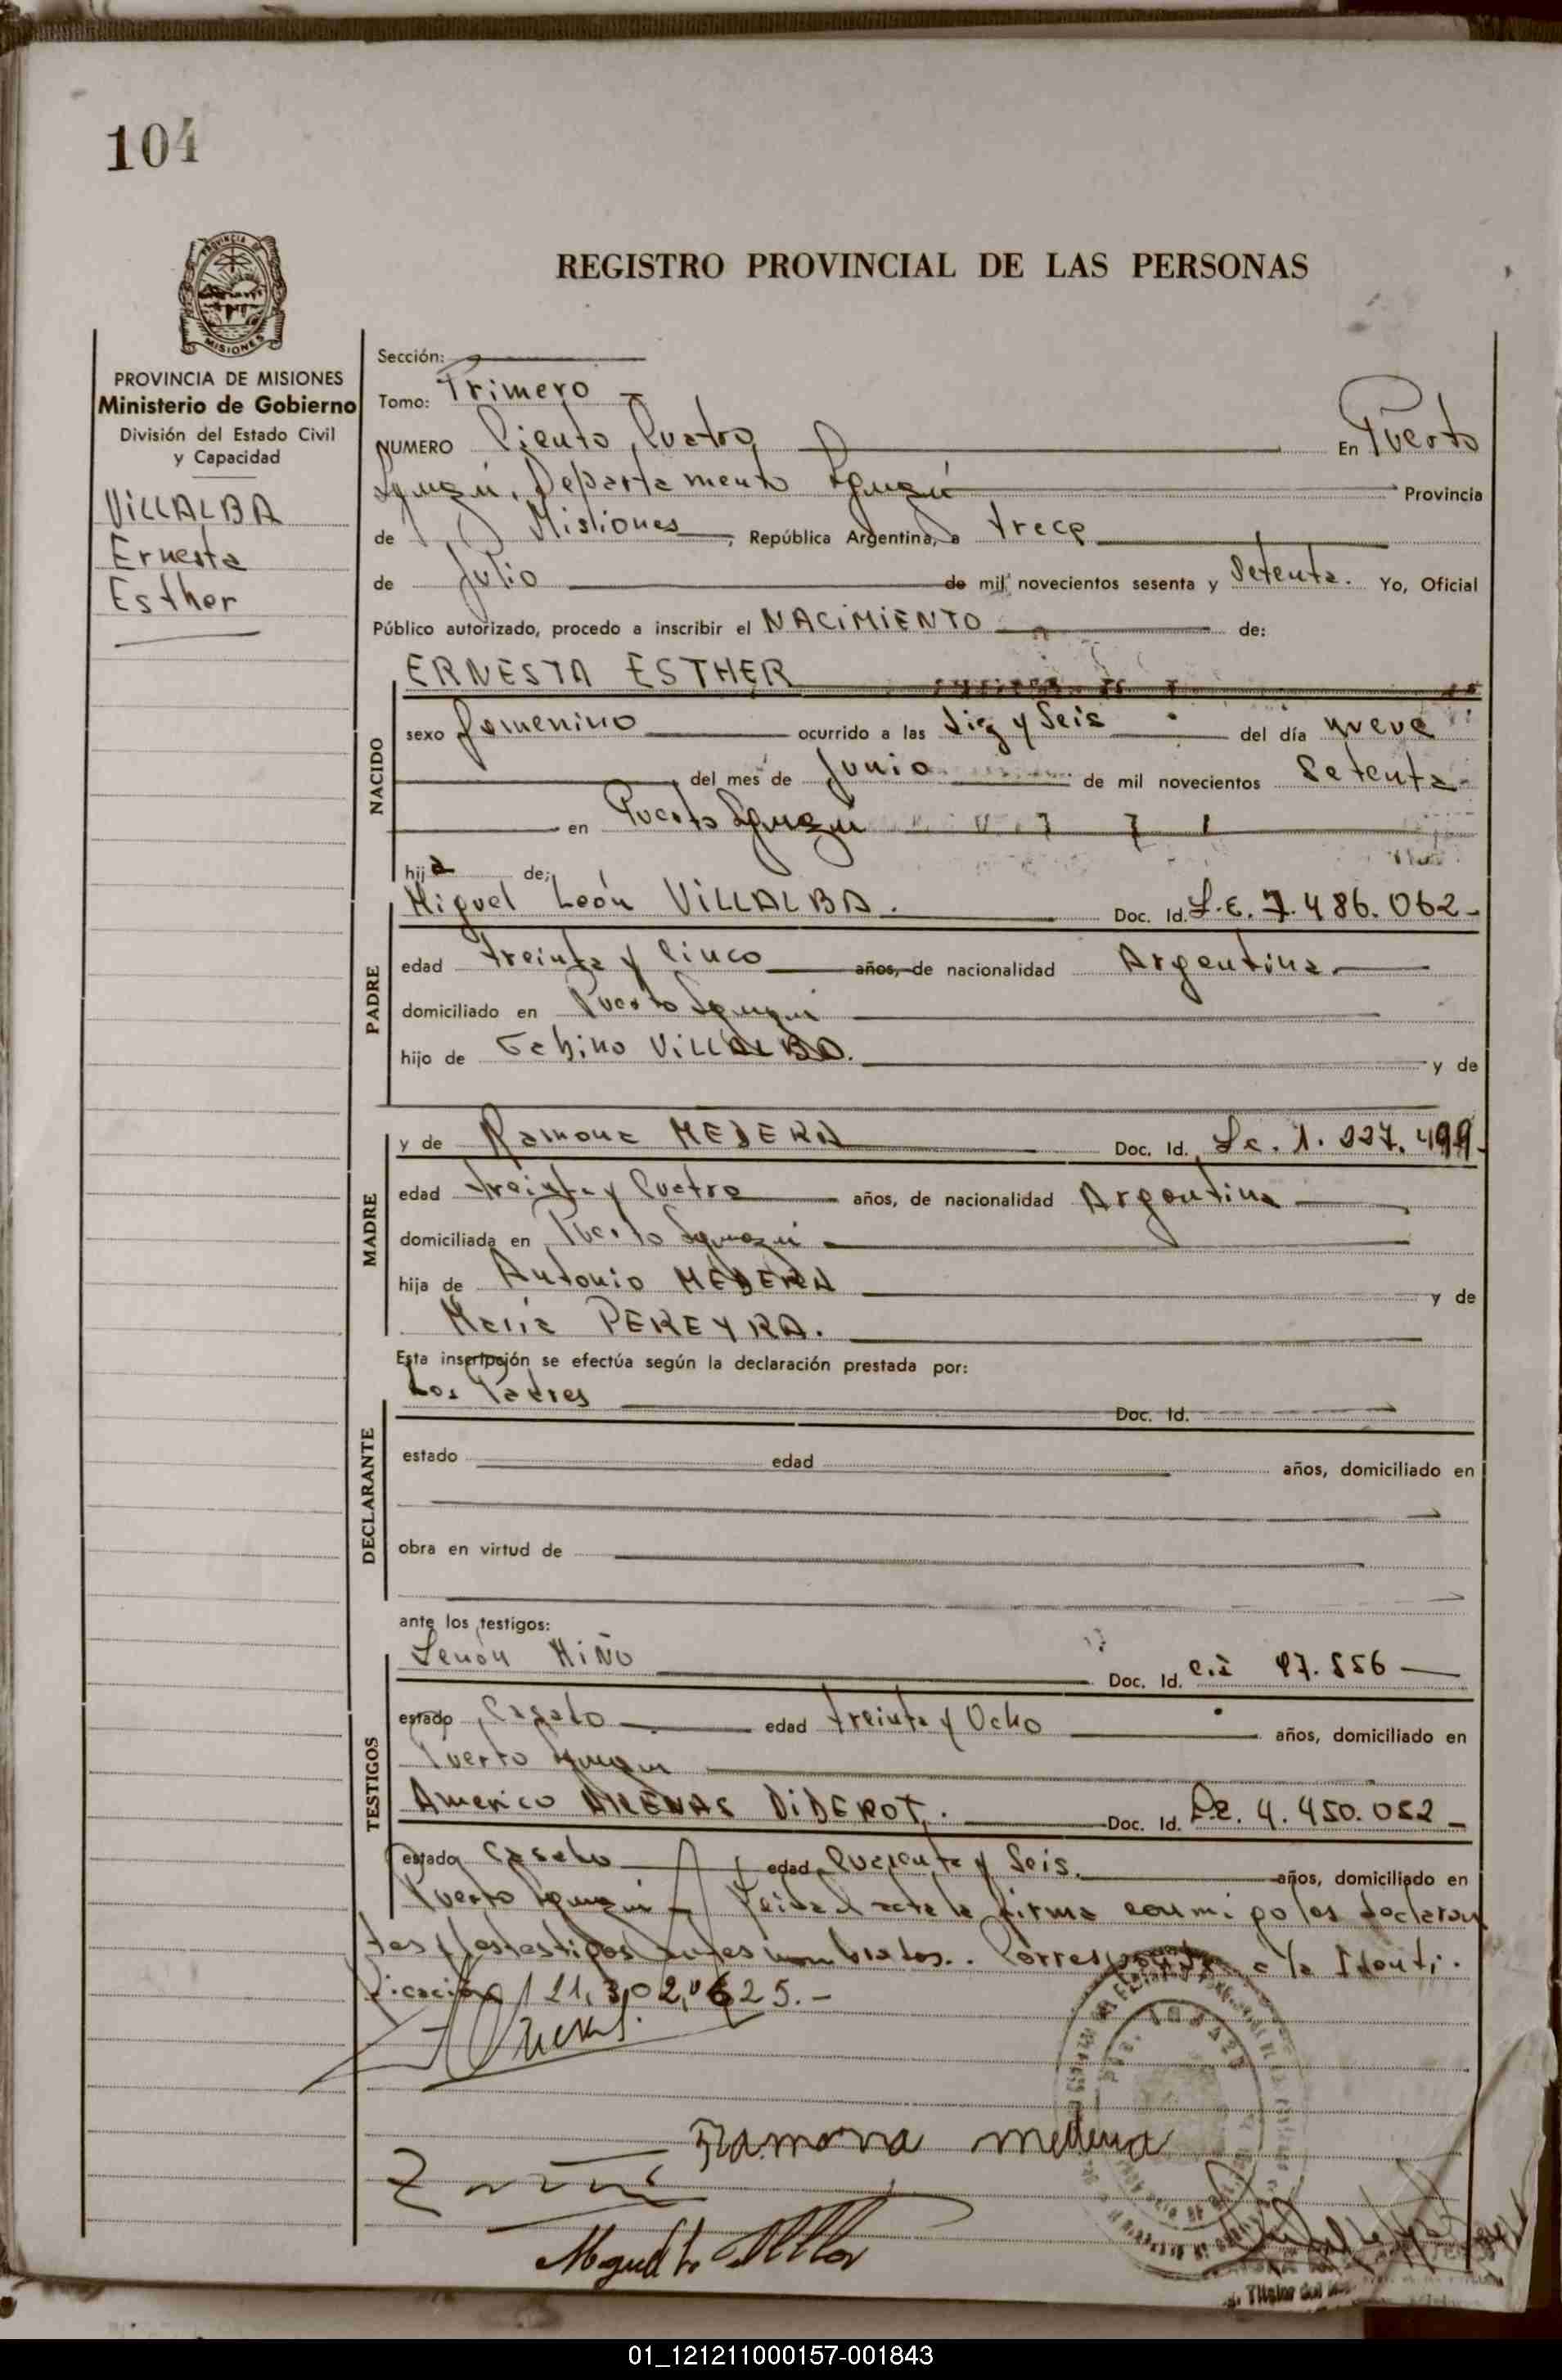 104
REGISTRO PROVINCIAL DE LAS PERSONAS
PROVINCIA DE MISIONES
MISIONES
PROVINCIA DE MISIONES
Ministerio de Gobierno
División del Estado Civil
y Capacidad
VILLALBA
Ernesta
Esther
Sección:
Tomo: Primero
NUMERO Ciento Cuatro En Puerto
Iguazú, Departamento Iguazú Provincia
de Misiones, República Argentina, a trece
de Julio de mil novecientos sesenta y Setenta. Yo, Oficial
Público autorizado, procedo a inscribir el NACIMIENTO de:
NACIDO
ERNESTA ESTHER
sexo femenino ocurrido a las diez y seis del día nueve
del mes de Junio de mil novecientos Setenta
en Puerto Iguazú
hija de:
PADRE
Miguel León VILLALBA. Doc. Id. L.E. 7.486.062-
edad treinta y Cinco años, de nacionalidad Argentina
domiciliado en Puerto Iguazú
hijo de Gabino VILLALBA. y de
MADRE
y de Ramona MEDERA Doc. Id. Lc. 1.227.499-
edad treinta y Cuatro años, de nacionalidad Argentina
domiciliada en Puerto Iguazú
hija de Antonio MEDERA y de
María PEREYRA.
Esta inscripción se efectúa según la declaración prestada por:
DECLARANTE
Los Padres Doc. Id.
estado edad años, domiciliado en
obra en virtud de
ante los testigos:
TESTIGOS
Zenón MIÑO Doc. Id. C.I 97.556
estado Casado edad treinta y Ocho años, domiciliado en
Puerto Iguazú
Americo ARENAS DIDEROT. Doc. Id. 4.450.052
estado Casado edad Cuarenta y Seis. años, domiciliado en
Puerto Iguazú Leida el acta la firma conmigo los declaran
tes y los testigos antes nombrados.. Corresponde a la Identi-
ficación 21,302,625.-
Ramona medina
01_121211000157-001843